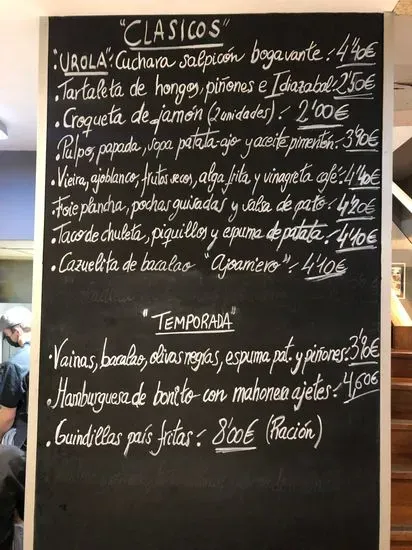 "CLASICOS"
·"UROLA": Cuchara salpicón bogavante: 4'40€
·Tartaleta de hongos, piñones e Idiazabal: 2'50€
·Croqueta de jamón (2 unidades): 2'00€
·Pulpo, papada, sopa patata-ajo y aceite pimentón: 3'90€
·Vieira, ajoblanco, frutos secos, alga frita y vinagreta café: 4'40€
·Foie plancha, pochas guisadas y salsa de pato: 4'20€
·Taco de chuleta, piquillos y espuma de patata: 4'40€
·Cazuelita de bacalao "Ajoarriero": 4'10€
"TEMPORADA"
·Vainas, bacalao, olivas negras, espuma pat. y piñones: 3'90€
·Hamburguesa de bonito con mahonesa ajetes: 4,60€
·Guindillas país fritas: 8'00€ (Ración)